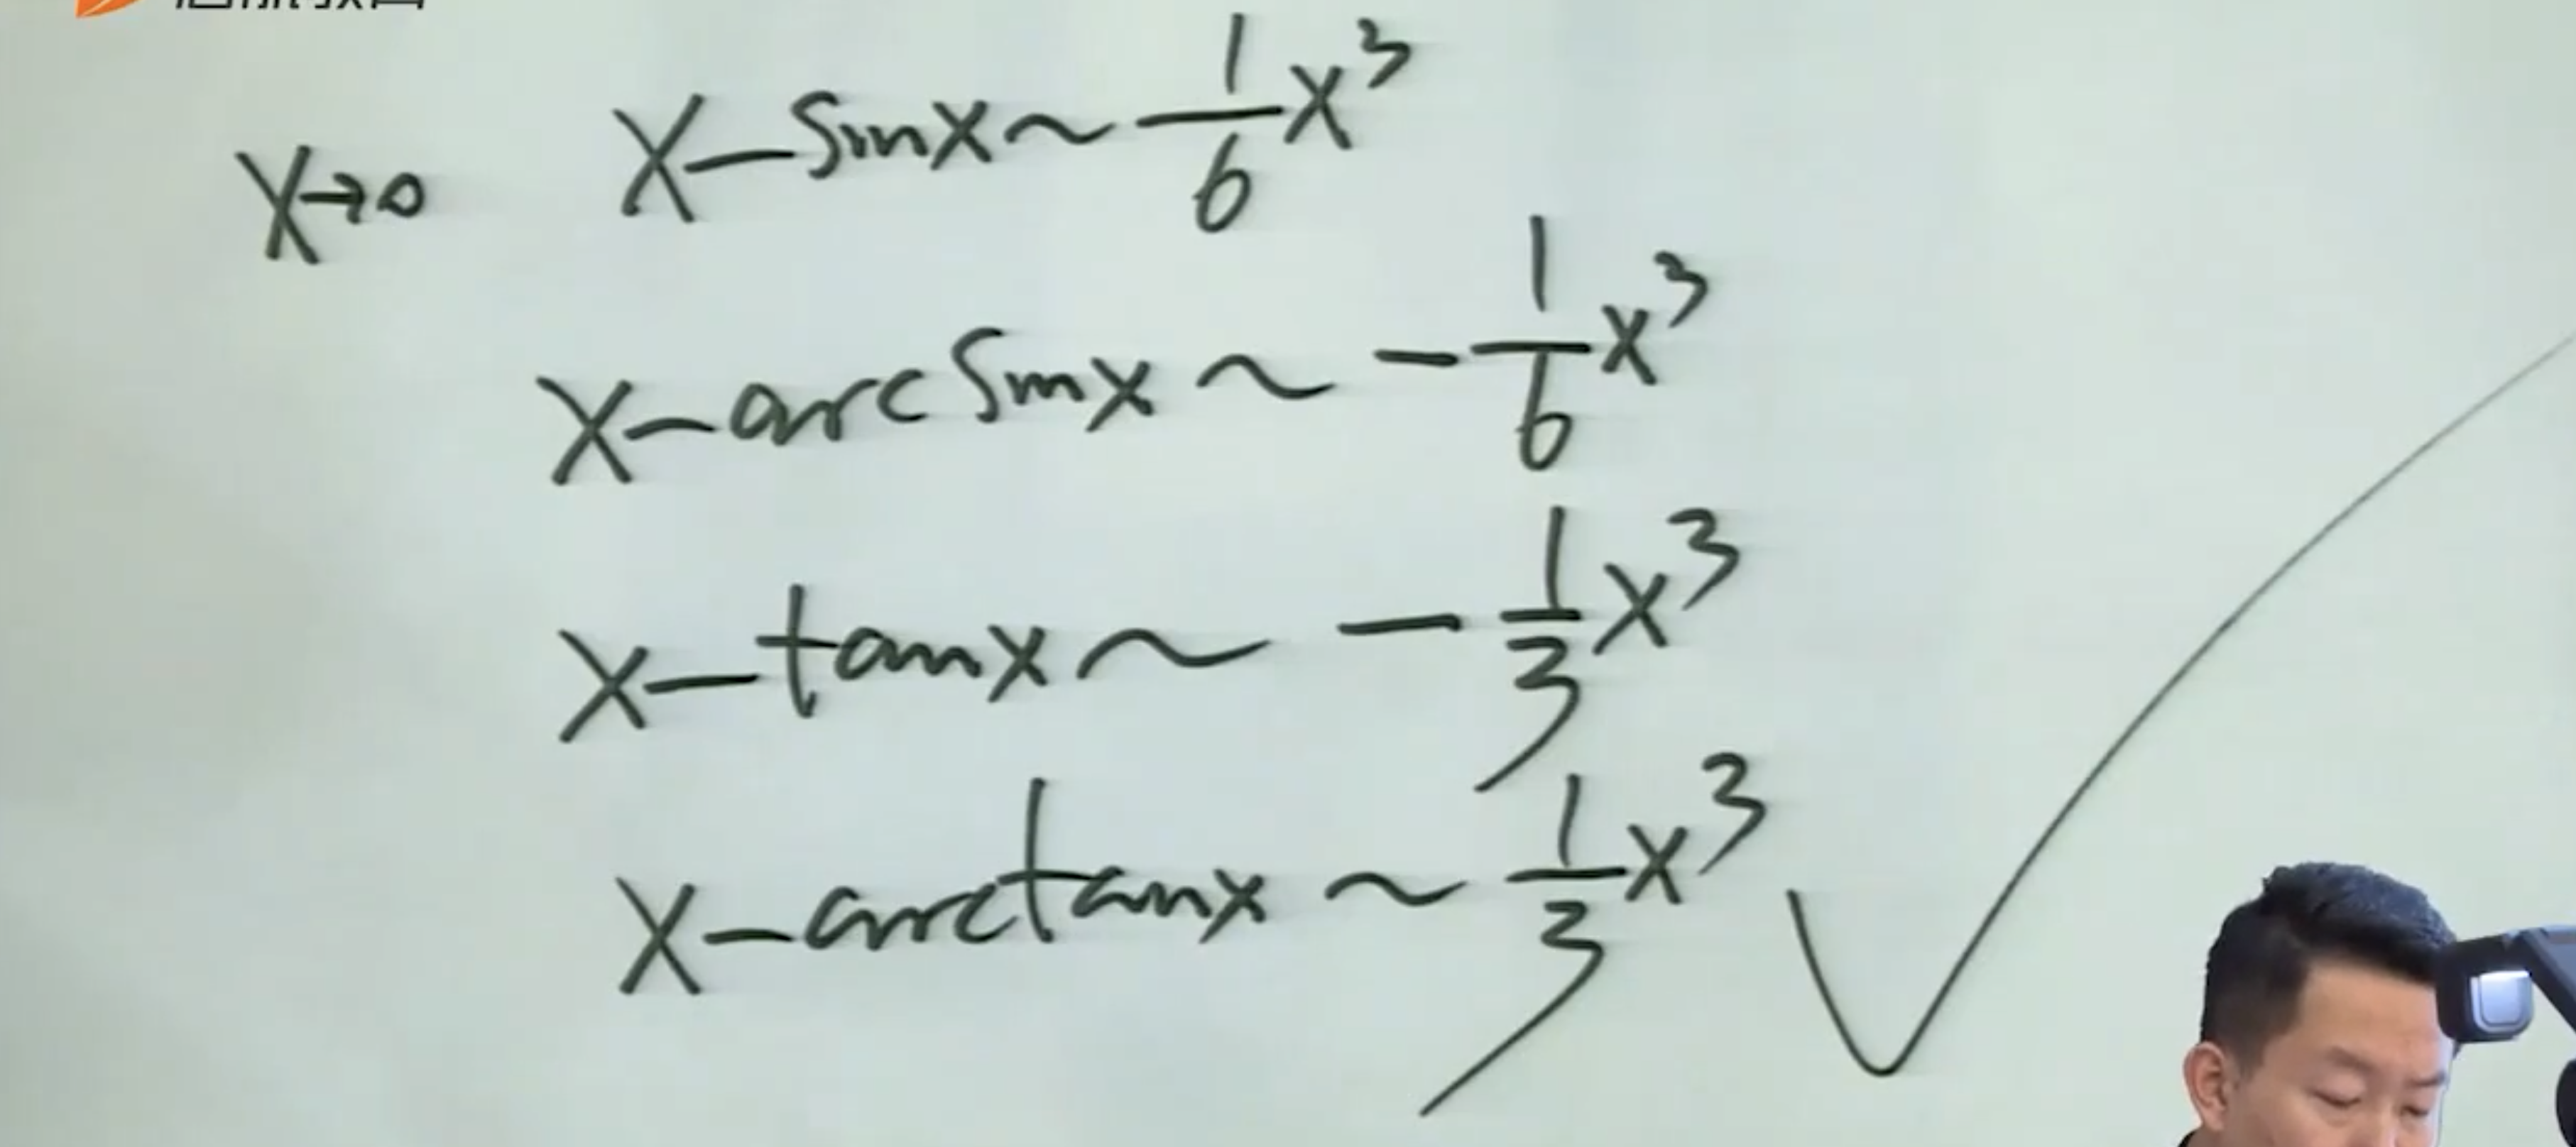 x→0
x-sinx~1/6 x³
x-arcsinx ~ -1/6 x³
x-tanx ~ -1/3 x³
x-arctanx ~ 1/3 x³